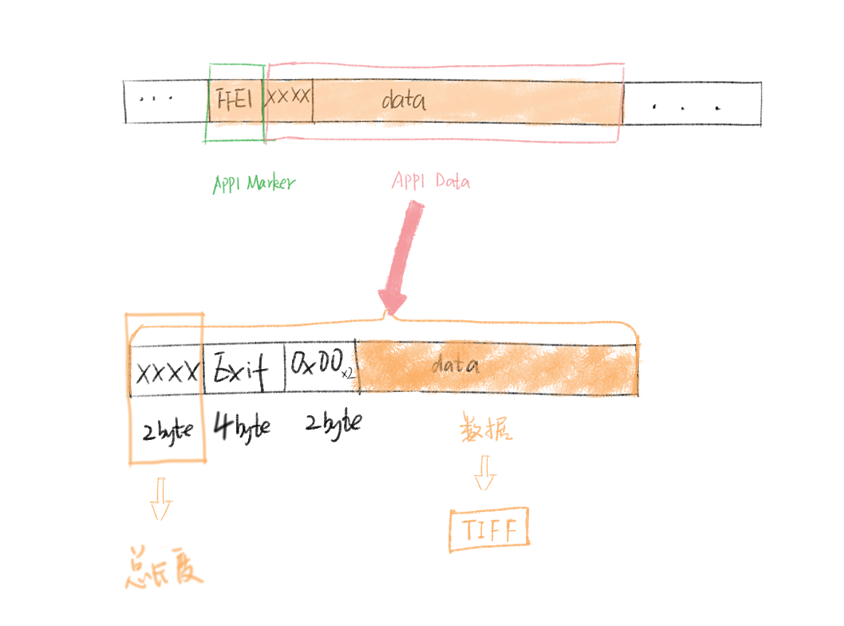 ... FFE1 XXXX data ...
APP1 Marker APP1 Data
XXXX Exif 0x00 x2 data
2byte 4byte 2byte 数据
TIFF
总长度